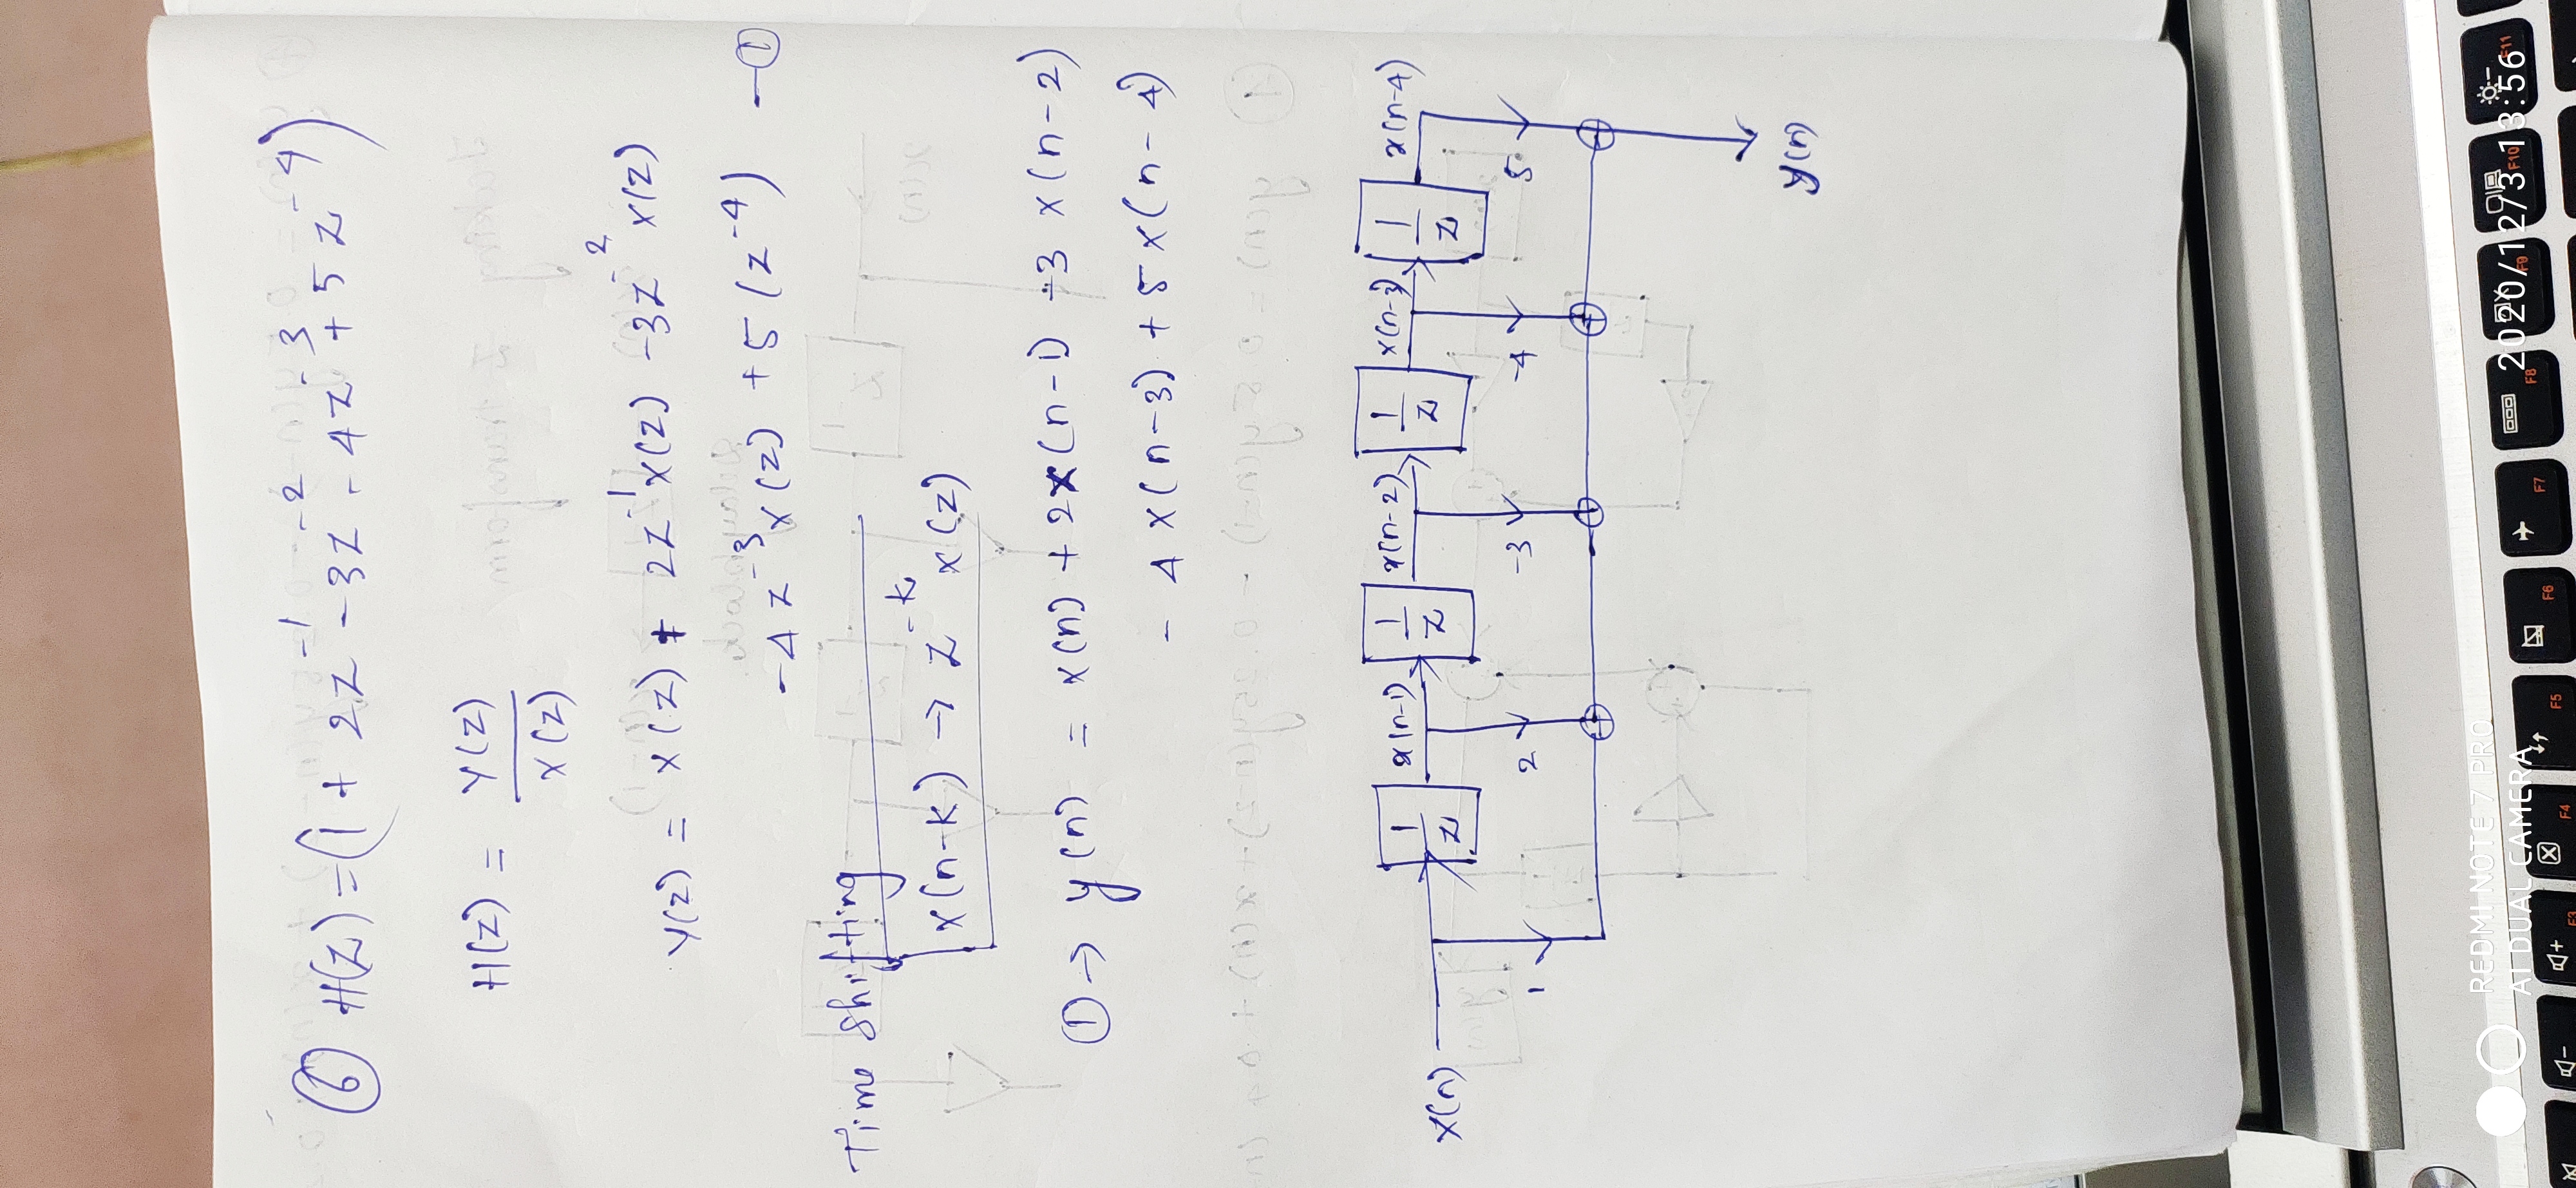 ⑥ H(Z) = (1 + 2Z⁻¹ - 3Z⁻² - 4Z⁻³ + 5Z⁻⁴)
H(Z) = Y(Z) / X(Z)
Y(Z) = X(Z) + 2Z⁻¹X(Z) - 3Z⁻² X(Z)
- 4Z⁻³X(Z) + 5(Z⁻⁴) - ①
Time Shifting
x(n-k) → Z⁻ᵏ X(Z)
① → y(n) = x(n) + 2x(n-1) - 3 x(n-2)
- 4 x(n-3) + 5 x(n-4)
x(n) 1/Z x(n-1) 1/Z x(n-2) 1/Z x(n-3) 1/Z x(n-4)
1 2 -3 -4 5
+ + + +
y(n)
REDMI NOTE 7 PRO
AI DUAL CAMERA
2020/12/3 13:56
F3 F4 F5 F6 F7 F8 F9 F10 F11